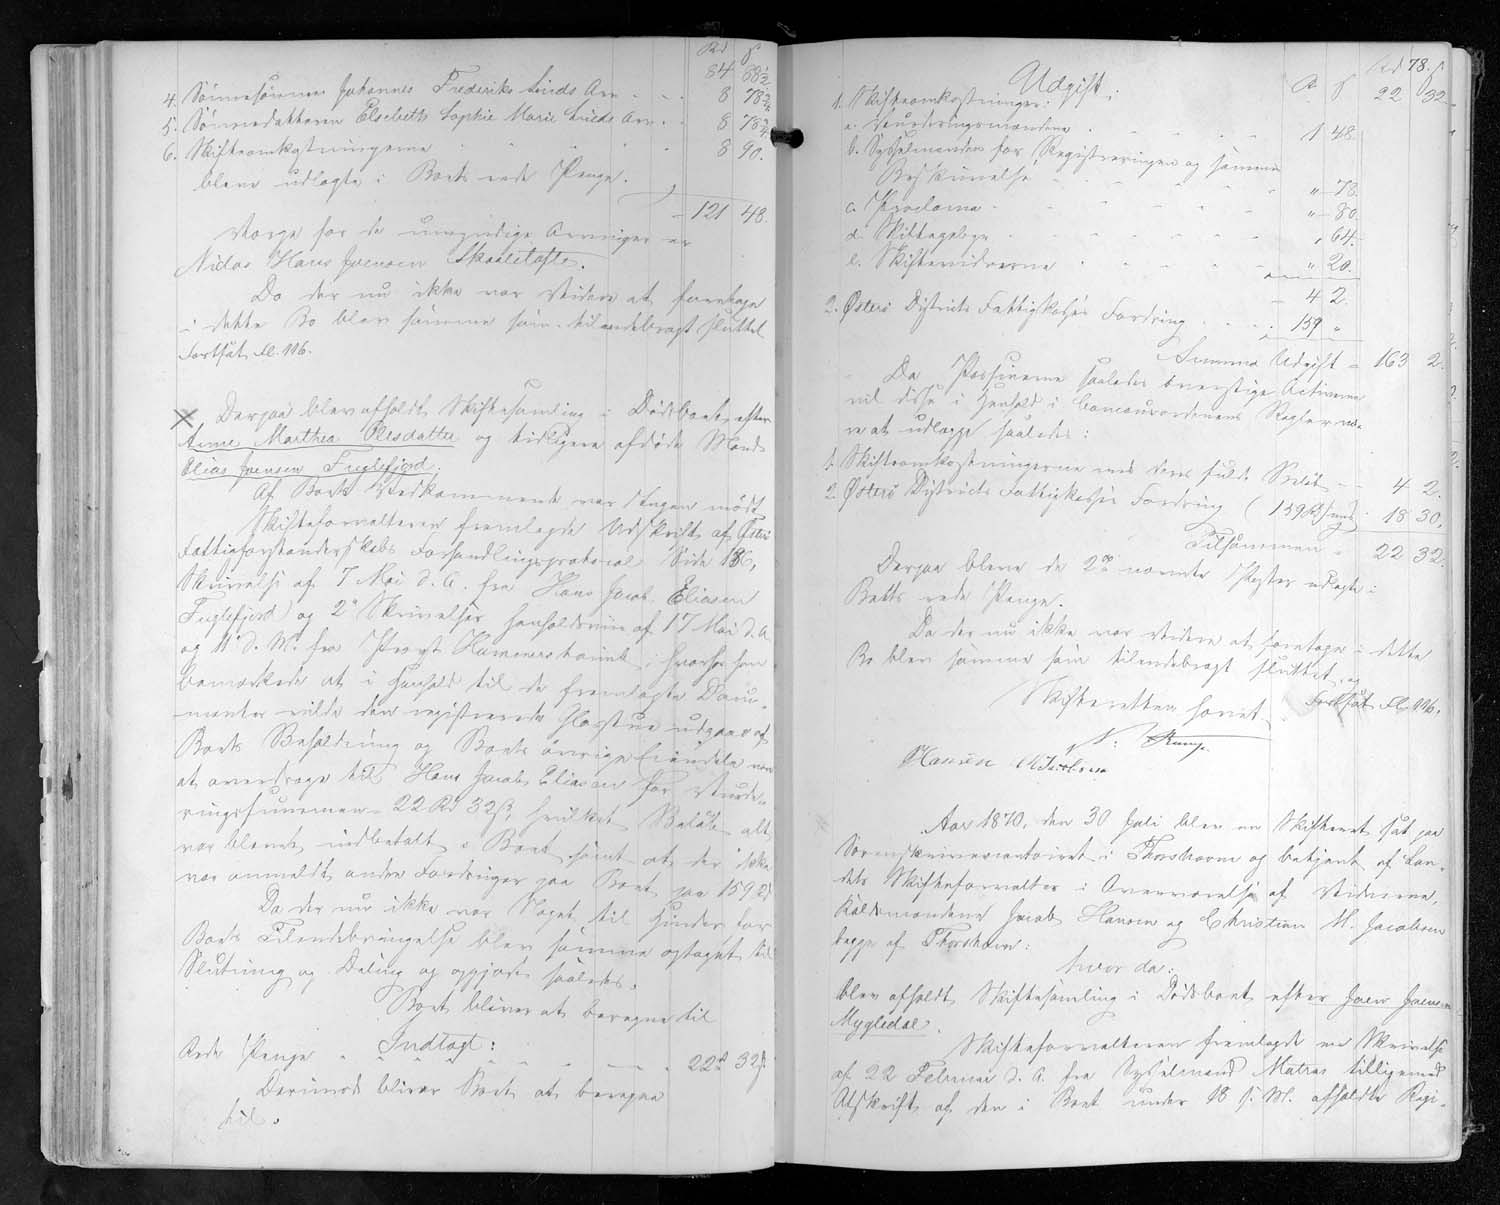 Rd ß
84 68½
4. Sönnesönnen Johannes Frederiks Linds Arv - - - 8 78¾
5. Sönnedatteren Elsebeth Sophie Marie Linds Arv - 8 78¾
6. Skifteomkostningerne - - - 8 90.
bleve udlagte i Boets rede Penge.
- 121 48.
Værge for de umyndige Arvinger er
Niclas Hans Joensen Skaaletofte.
Da der nu ikke var videre at foretage
i dette Bo blev samme som tilendebragt sluttet
Fortsat Fl. 116.
× Derpaa blev afholdt Skiftesamling i Dödsboet efter
Anne Marthea Olesdatter og tidligere afdöde Mand
Elias Joensen Fuglefjord.
Af Boets Vedkommende var Ingen mödt.
Skifteforvalteren fremlagde Udskrift af Österö
Fattigforstanderskabs Forhandlingsprotocol Side 186,
Skrivelse af 7 Mai d. A. fra Hans Jacob Eliasen
Fuglefjord og 2de Skrivelser henholdsvis af 17 Mai d. A.
og 11 d. M. fra Provst Hammershaimb, hvorfor han
bemærkede at i Henhold til de fremlagte Docu-
menter vilde den registrerede Glasstue udgaae af
Boets Beholdning og Boets övrige Eiendele være
at overdrage til Hans Jacob Eliasen for Vurde-
ringssummen = 22 Rd 32 ß, hvilket Belöb alt
var blevet indbetalt i Boet samt at der ikke
var anmeldt andre Fordringer paa Boet paa 159 Rd
Da der nu ikke var Noget til Hinder for
Boets Tilendebringelse blev samme optaget til
Slutning og Deling og opgjort saaledes.
Boet bliver at beregne til
Indtægt:
Rede Penge - - - - 22 Rd 32 ß.
Derimod bliver Boet at beregne
til.
Rd 78. ß
22 32.
Udgift:
Rd ß
1. Skifteomkostninger:
a. Vurderingsmændene - - - 1 48.
b. Sysselmanden for Registreringen og samme
Beskrivelse - - - " 78.
c. Proclama - - - " 80.
d. Skiftegebyr - - - " 64.
e. Skiftevidnerne - - - " 20.
- 4 2.
2. Österö Districts Fattigkasses Fordring - - - 159 "
Summa Udgift = 163 2.
Da Passiverne saaledes overstige Activerne
vil disse i Henhold i Concursordenens Regler væ-
re at udlægge saaledes:
1. Skifteomkostningerne med deres fulde Belöb - - 4 2.
2. Österö Districts Fattigkasses Fordring (159 Rd) med - 18 30.
Tilsammen - 22 32.
Derpaa bleve de 2de nævnte Poster udlagte i
Boets rede Penge.
Da der nu ikke var videre at foretage i dette
Bo blev samme som tilendebragt sluttet og
Skifteretten hævet. Fortsat Fl. 116.
Hansen
Aar 1870, den 30 Juli blev en Skifteret sat paa
Sorenskrivercontoiret i Thorshavn og betjent af Lan-
dets Skifteforvalter i Overværelse af Vidnerne,
Kaldsmændene Jacob Hansen og Christian M. Jacobsen
begge af Thorshavn:
hvor da:
blev afholdt Skiftesamling i Dödsboet efter Joen Joensen
Mygledal.
Skifteforvalteren fremlagde en Skrivelse
af 22 Februar d. A. fra Sysselmand Matras tilligemed
Afskrift af den i Boet under 18 s. M. afholdte Regi-